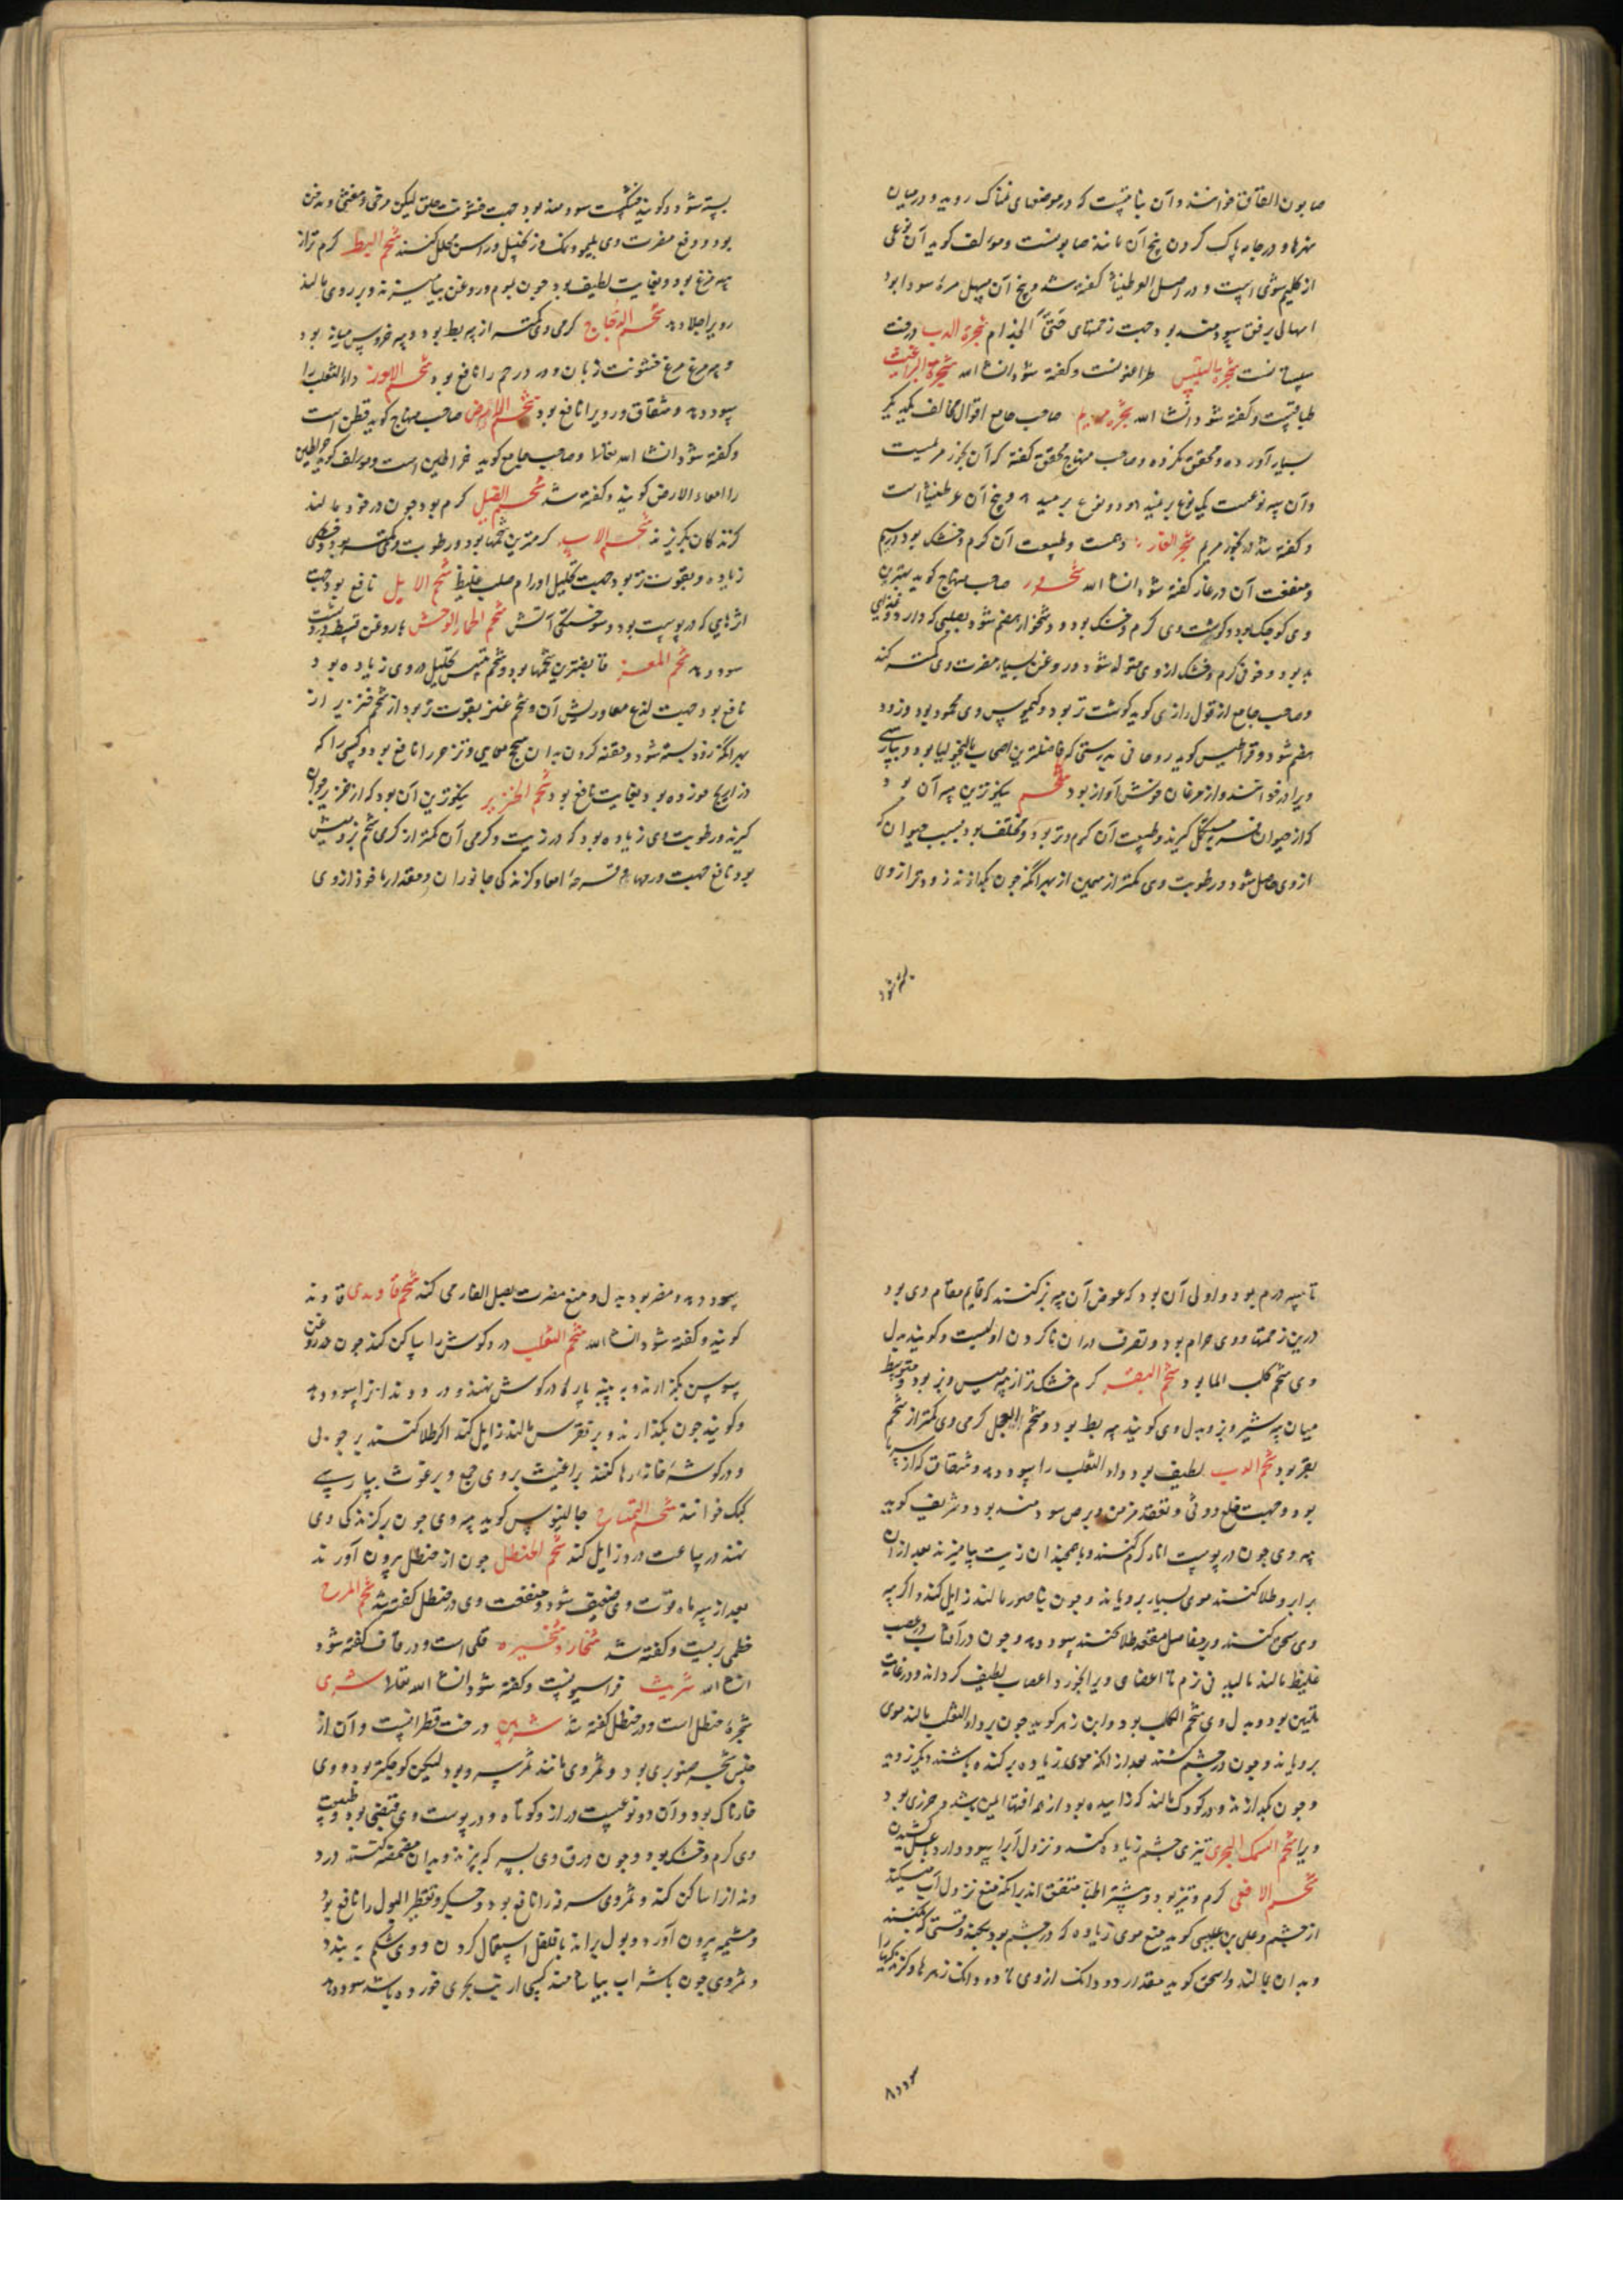 صابون القاق خوانند و آن نباتیست که در موضعهای نمناک روید و در میان
نهرها و در جامه پاک کردن بیخ آن مانند صابونست و مولف کوید آن نوعی
از کلیم شوی است و در اصل العرطنیثا گفته شد و بیخ آن مسهل مره سودا بود
اسهالی برفق سودمند بود جهت زحمتهای حتی الجذام شجرة الدب درخت
سپستانست شجرة بالینس طراغیونست و گفته شود انشا الله شجرة البراغیث
طباقیست و گفته شود انشا الله شجره مریم صاحب جامع اقوال مخالف یکدیگر
بسیار آورده و محقق نکرده و صاحب منهاج محقق گفته که آن بخور مریمست
و آن سه نوعست یک نوع بر میند و دو نوع بر میند و بیخ آن عرطنیثا است
و گفته شد در بخور مریم شجر الغار دهمست و طبیعت آن کرم و خشک بود
و منفعت آن در غار گفته شود انشا الله شحرور صاحب منهاج کوید بهترین
وی کوچک بود و کوشت وی کرم و خشک بود و دشخوار هضم شود
بد بود و خونی کرم و خشک از وی متولد شود و روغن بسیار مضرت وی کمتر کند
و صاحب جامع از قول رازی کوید کوشت تر بود و کیموس وی محمود بود و زود
هضم شود و قراطیس کوید روحانی بدرستی که فاضلترین اصحاب مالیخولیا بود و بپارسی
ویرا در خوانند و از مرغان خوش آواز بود شحم نیکوترین پیه آن بود
که از حیوان فربه گیرند و طبیعت آن کرم و تر بود و مختلف بود بسبب حیوان که
از وی حاصل شود و رطوبت وی کمتر از سمین از بهر آنکه چون بگدازند زودتر از وی
بسته شود
بسته شود و کویند خشکست سودمند بود جهت خشونت حلق لیکن مرخی و مغثی و مدخن
بود و دفع مضرت وی بلیمو و نمک و زنجبیل و راسن مخلل کنند شحم البط کرم تر از
پیه مرغ بود و بغایت لطیف بود چون بموم و روغن بیامیزند و بر روی مالند
رویرا جلا دهد شحم الدجاج کرمی وی کمتر از پیه بط بود و پیه خروس میانه بود
و پیه مرغ خشونت زبان و درد رحم را نافع بود شحم الاوز داء الثعلب را
سود دهد و شقاق و رویرا نافع بود شحم الارض صاحب منهاج کوید قطن است
و گفته شود انشا الله تعالی و صاحب جامع کوید خراطین است و مولف کوید خراطین
را امعاء الارض کویند و گفته شد شحم الفیل کرم بود چون در خود بمالند
کزندکان بگریزند شحم الاسد کرمترین شحمها بود و رطوبت وی کمتر بود و خشکی
زیاده و بقوت تر بود جهت تحلیل اورام صلب غلیظ شحم الایل نافع بود جهت
اثرهایی که در پوست بود و سوختگی آتش شحم الحمار الوحش با روغن قسط درد پشت
سود دهد شحم المعز قابضترین شحمها بود و شحم تیس تحلیل در وی زیاده بود
نافع بود جهت لذع معا و ریش آن و شحم عنز بقوت تر بود از شحم خنزیر از
بهر آنکه زود بسته شود و حقنه کردن بدان سحج معایی و تزحر را نافع بود و کسی را که
ذراریح خورده بود بغایت نافع بود شحم الخنزیر نیکوترین آن بود که از خنزیر جوان
گیرند و رطوبت وی زیاده بود که در زیت و کرمی آن کمتر از کرمی شحم بز و میش
بود نافع جهت ورمها و قرحهٔ امعا و کزندکی جانوران و مقدار ماخوذ از وی
تا سه درم بود و اولی آن بود که عوض آن پیه بز کنند که قایم مقام وی بود
درین زحمتها و وی حرام بود و تصرف در آن ناکردن اولیست و کویند بدل
وی شحم کلب الما بود شحم البقر کرم خشک تر از پیه میش و بز بود و متوسط
میان پیه شیر و بز و بدل وی کویند پیه بط بود و شحم العجل کرمی وی کمتر از شحم
بقر بود شحم الدب لطیف بود و داء الثعلب را سود دهد و شقاق که از سرما
بود و جهت فلج و وثی و تعقد مزمن و برص سودمند بود و شریف کوید
پیه وی چون در پوست انار کرم کنند و با همچندان زیت بیامیزند بعد از آن
بر ابرو طلا کنند موی بسیار برویاند و چون بناصور مالند زایل کند و اگر پیه
وی سحق کنند و بر مفاصل منعقد طلا کنند سود دهد و چون در آفتاب در عصب
غلیظ مالند مالیدنی نرم تا اعضای ویرا بخورد اعصاب لطیف کرداند و در غایت
تلیین بود و بدل وی شحم الکلب بود و ابن زهر کوید چون بر داء الثعلب مالند موی
برویاند و چون در چشم کشند بعد از آنکه موی زیاده بر کنده باشند دیگر نروید
و چون بگدازند و در کودک مالند که زاییده بود از همه آفتها ایمن باشد و حرزی بود
ویرا شحم السمک البحری تیزی چشم زیاده کند و نزول آبرا سود دارد با عسل کشیدن
شحم الافعی کرم و تیز بود و بیشتر اطبا متفق اند بر آنکه منع نزول آب میکند
از چشم و علی بن عیسی کوید منع موی زیاده که در چشم بود بکند وقتی که بکنند
و بدان بمالند و اسحق کوید مقدار دو دانک از وی تا ده دانک زهرها و کزندکیها را
سود دهد
سود دهد و مضر بود بدل و منع مضرت بصل الفار می کند شحم قاوندی قاوند
کویند و گفته شود انشا الله شحم الثعلب درد کوش را ساکن کند چون در روغن
سوسن بگدازند و به پنبه پاره در کوش نهند و درد دندانرا سود دهد
و کویند چون بگدازند و بر نقرس مالند زایل کند اگر طلا کنند بر چوبی
و در کوشهٔ خانه رها کنند براغیث بر وی جمع و برغوث بپارسی
کیک خوانند شحم التمساح جالینوس کوید پیه وی چون بر کزندکی وی
نهند در ساعت درد زایل کند شحم الحنظل چون از حنظل بیرون آورند
بعد از سه ماه قوت وی ضعیف شود و منفعت وی در حنظل گفته شد شحم المرج
خطمی بریست و گفته شد شخار و شخیره قلی است و در قاف گفته شود
انشا الله شربث فراسیونست و گفته شود انشا الله تعالی شری
شجره حنظل است و در حنظل گفته شد شربین درخت قطرانست و آن از
جنس شجر صنوبری بود و ثمر وی مانند ثمر سرو بود لیکن کوچکتر بود و وی
خارناک بود و آن دو نوعست دراز و کوتاه و در پوست وی قبضی بود و طبیعت
وی کرم و خشک بود و چون ورق وی بسرکه بپزند و بدان مضمضه کنند درد
دندانرا ساکن کند و ثمر وی سرفه را نافع بود و جگر و تقطیر البول را نافع بود
و مشیمه بیرون آورد و بول براند با فلفل استعمال کردن و وی شکم به بندد
و ثمر وی چون با شراب بیاشامند کسی ارنب بحری خورده باشد سود دهد